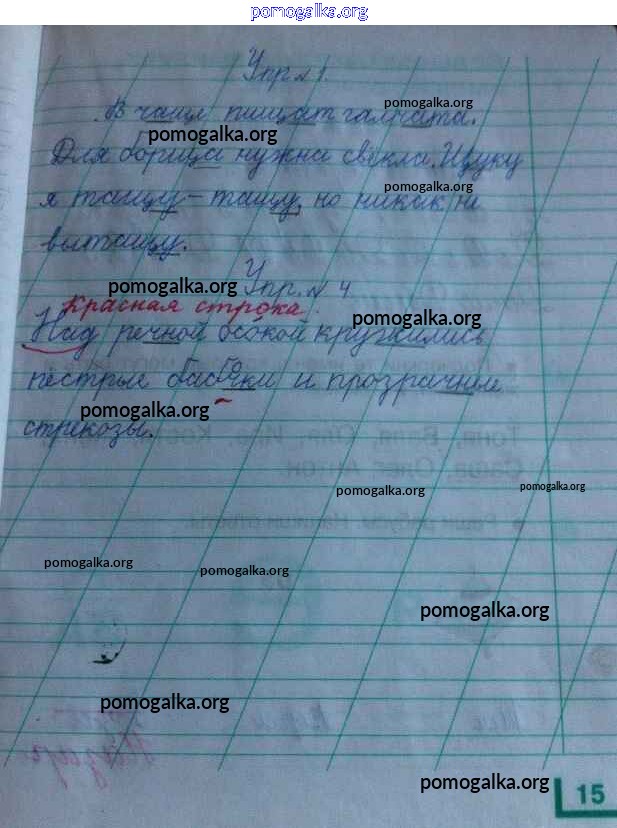 pomogalka.org
Упр № 1.
pomogalka.org
В чаще пищат галчата.
pomogalka.org
Для борща нужна свёкла. Щуку
pomogalka.org
я тащу - тащу, но никак не
вытащу.
pomogalka.org
Упр. № 4
Красная строка.
pomogalka.org
Над речной осокой кружились
пёстрые бабочки и прозрачные
pomogalka.org
стрекозы.
pomogalka.org
pomogalka.org
pomogalka.org
pomogalka.org
pomogalka.org
pomogalka.org
pomogalka.org
15